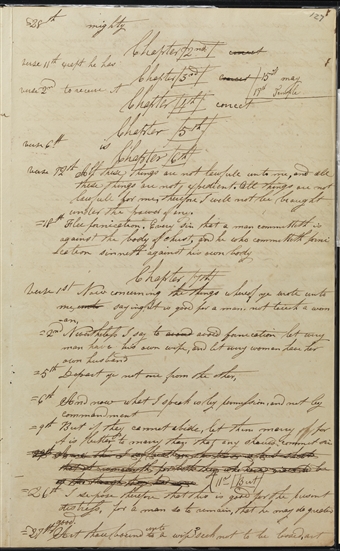 =28th mighty 127
Chapter 2nd correct
verse 11th wept he has
Chapter 3rd correct 15th may
verse 2nd to receive it 17th temple
Chapter 4th correct
Chapter 5th
verse 6th is
Chapter 6th
verse 12th All these things are not lawfull unto me, and all
these things are not expedient. All things are not
lawfull for me, therefore I will not be brought
under the power of any.
=18th Flee fornication. Every sin that a man committeth is
against the body of christ, and he who committeth forni
cation sinneth against his own body
Chapter 7th
verse 1st Now concerning the things whereof ye wrote unto
me, saying it is good for a man, not touch a wom
an,
=2nd Nevertheless I say to avoid fornication let every
man have his own wife, and let every woman have her
own husband
=5th Depart ye not one from the other,
=6th And now what I speak is by permission and not by
commandment
=9th But if they cannot abide, let them marry, for
it is better to marry than that any should commit sin
11th But
=26th I suppose therefore that this is good for the present
distress, for a man so to remain, that he may do greater
good.
=27th Art thou bound unto a wife, seek not to be loosed, art